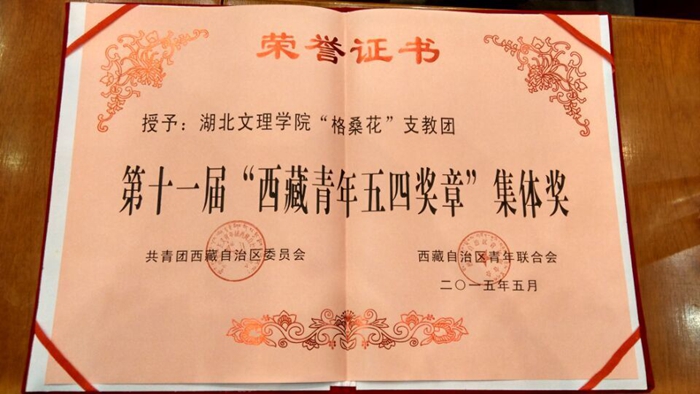 荣誉证书
授予：湖北文理学院“格桑花”支教团
第十一届“西藏青年五四奖章”集体奖
共青团西藏自治区委员会 西藏自治区青年联合会
二〇一五年五月